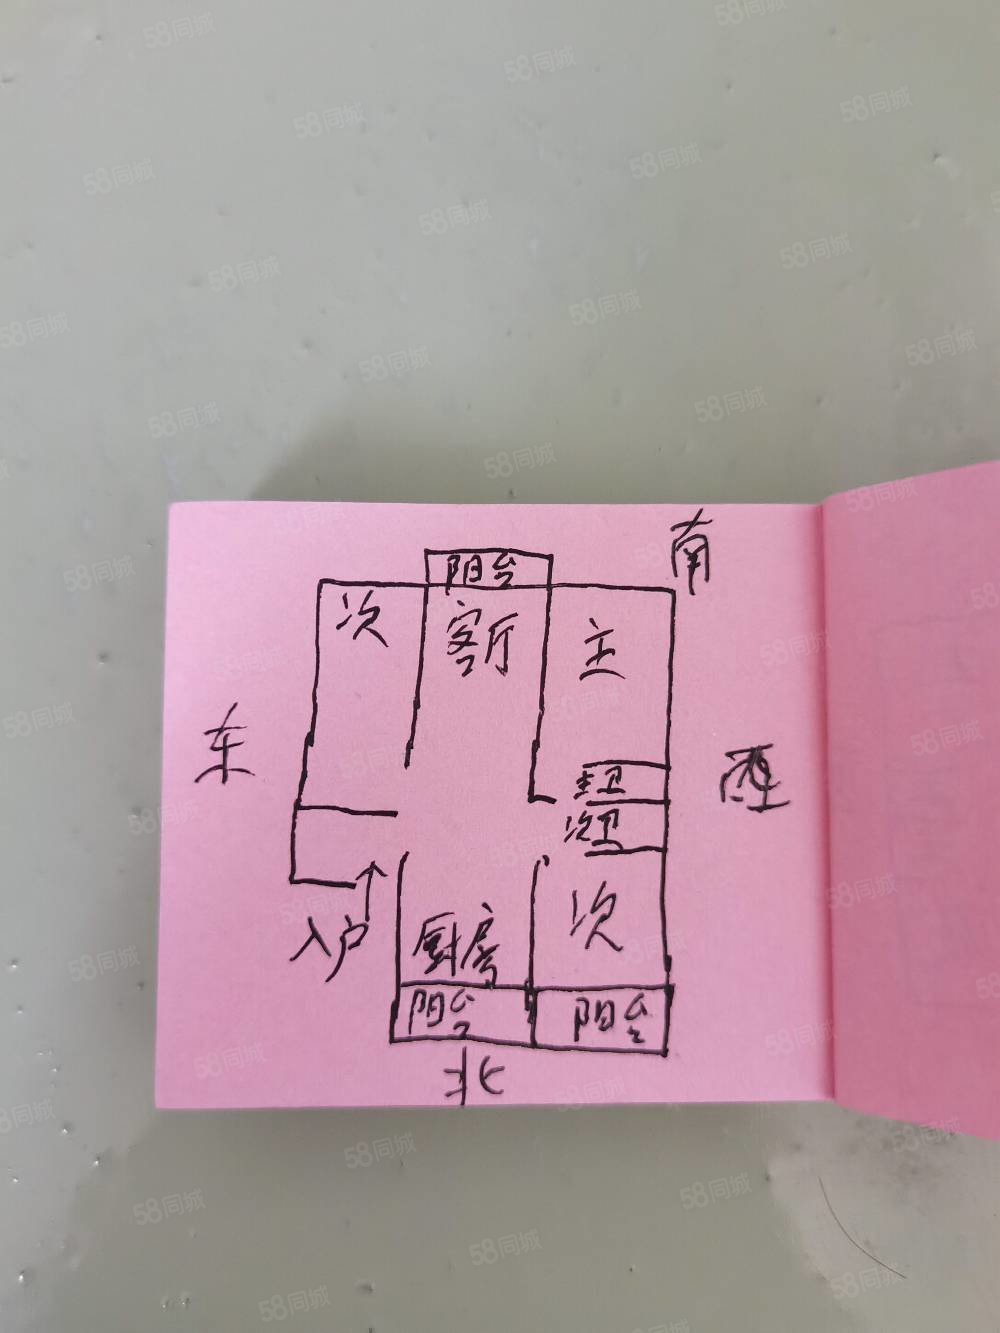 南
阳台
次 客厅 主
东
西
主卫
次卫
入户
厨房 次
阳台 阳台
北
58同城